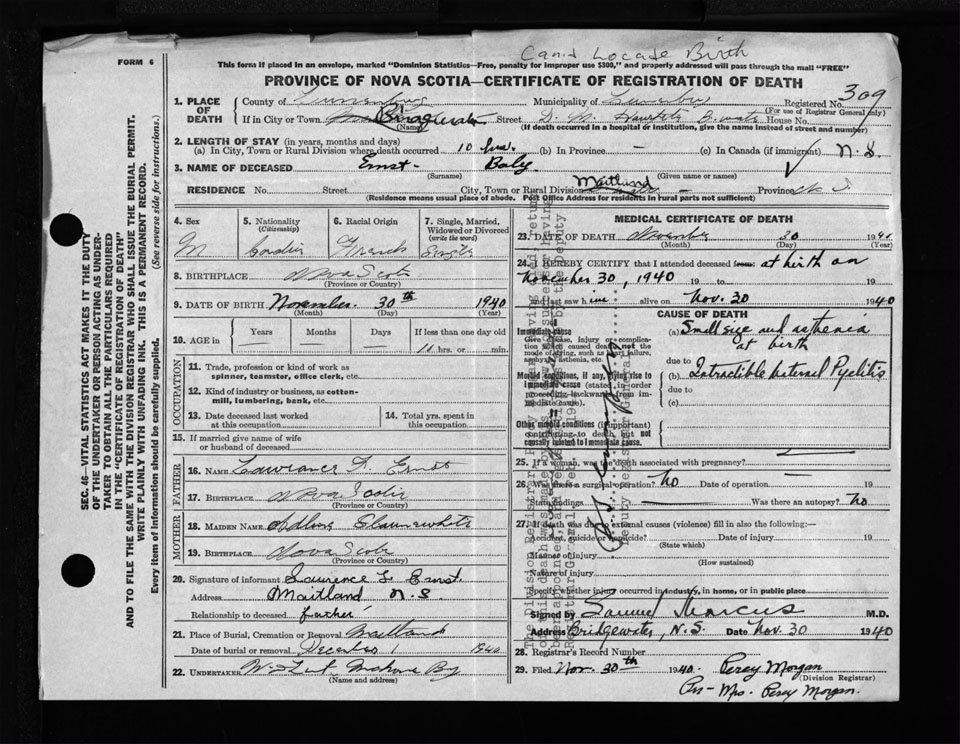 Can't Locate Birth
FORM 6
This form if placed in an envelope, marked "Dominion Statistics—Free, penalty for improper use $300," and properly addressed will pass through the mail "FREE"
PROVINCE OF NOVA SCOTIA—CERTIFICATE OF REGISTRATION OF DEATH
309
1. PLACE OF DEATH
County of Lunenburg Municipality of Registered No.
(For use of Registrar General only)
If in City or Town Street House No.
(Name) (If death occurred in a hospital or institution, give the name instead of street and number)
2. LENGTH OF STAY (in years, months and days)
(a) In City, Town or Rural Division where death occurred 10 hrs. (b) In Province — (c) In Canada (if immigrant) N.S.
3. NAME OF DECEASED Ernst Baby
(Surname) (Given name or names)
RESIDENCE No. Street City, Town or Rural Division Maitland Province N.S.
(Residence means usual place of abode. Post Office Address for residents in rural parts not sufficient)
4. Sex 5. Nationality (Citizenship) 6. Racial Origin 7. Single, Married, Widowed or Divorced (write the word)
M French Single
8. BIRTHPLACE Nova Scotia
(Province or Country)
9. DATE OF BIRTH November 30th 1940
(Month) (Day) (Year)
10. AGE in Years Months Days If less than one day old
10 hrs. or min.
OCCUPATION
11. Trade, profession or kind of work as spinner, teamster, office clerk, etc.
12. Kind of industry or business, as cotton-mill, lumbering, bank, etc.
13. Date deceased last worked at this occupation 14. Total yrs. spent in this occupation
15. If married give name of wife or husband of deceased
FATHER
16. NAME Lawrence Ernst
17. BIRTHPLACE Nova Scotia
(Province or Country)
MOTHER
18. MAIDEN NAME Slaunwhite
19. BIRTHPLACE Nova Scotia
(Province or Country)
20. Signature of informant Lawrence L. Ernst.
Address Maitland N.S.
Relationship to deceased father
21. Place of Burial, Cremation or Removal Maitland
Date of burial or removal December 1 1940
22. UNDERTAKER Mahone Bay
(Name and address)
MEDICAL CERTIFICATE OF DEATH
23. DATE OF DEATH November 30 1940
(Month) (Day) (Year)
24. I HEREBY CERTIFY that I attended deceased from: at birth on
November 30, 1940 19 to 19
and last saw him alive on Nov. 30 1940
CAUSE OF DEATH
Immediate cause
Give disease, injury or complication which caused death, not the mode of dying, such as heart failure, asphyxia, asthenia, etc.
(a) Small size and asthenia
at birth
due to
Morbid conditions, if any, giving rise to immediate cause (stated in order proceeding backwards from immediate cause).
(b) Intractible maternal Pyelitis
due to
(c)
Other morbid conditions (if important) contributing to death but not causally related to immediate cause.
25. If a woman, was the death associated with pregnancy? —
26. Was there a surgical operation? No Date of operation — 19
State findings — Was there an autopsy? No
27. If death was due to external causes (violence) fill in also the following:—
Accident, suicide or homicide? Date of injury 19
(State which)
Manner of injury
(How sustained)
Nature of injury
Specify whether injury occurred in industry, in home, or in public place
Signed by Samuel Marcus M.D.
Address Bridgewater, N.S. Date Nov. 30 1940
28. Registrar's Record Number
29. Filed Nov. 30th 1940. Percy Morgan
(Division Registrar)
Per—Mrs. Percy Morgan.
SEC. 46—VITAL STATISTICS ACT MAKES IT THE DUTY
OF THE UNDERTAKER OR PERSON ACTING AS UNDER-
TAKER TO OBTAIN ALL THE PARTICULARS REQUIRED
IN THE "CERTIFICATE OF REGISTRATION OF DEATH"
AND TO FILE THE SAME WITH THE DIVISION REGISTRAR WHO SHALL ISSUE THE BURIAL PERMIT.
WRITE PLAINLY WITH UNFADING INK. THIS IS A PERMANENT RECORD.
Every item of Information should be carefully supplied. (See reverse side for instructions.)